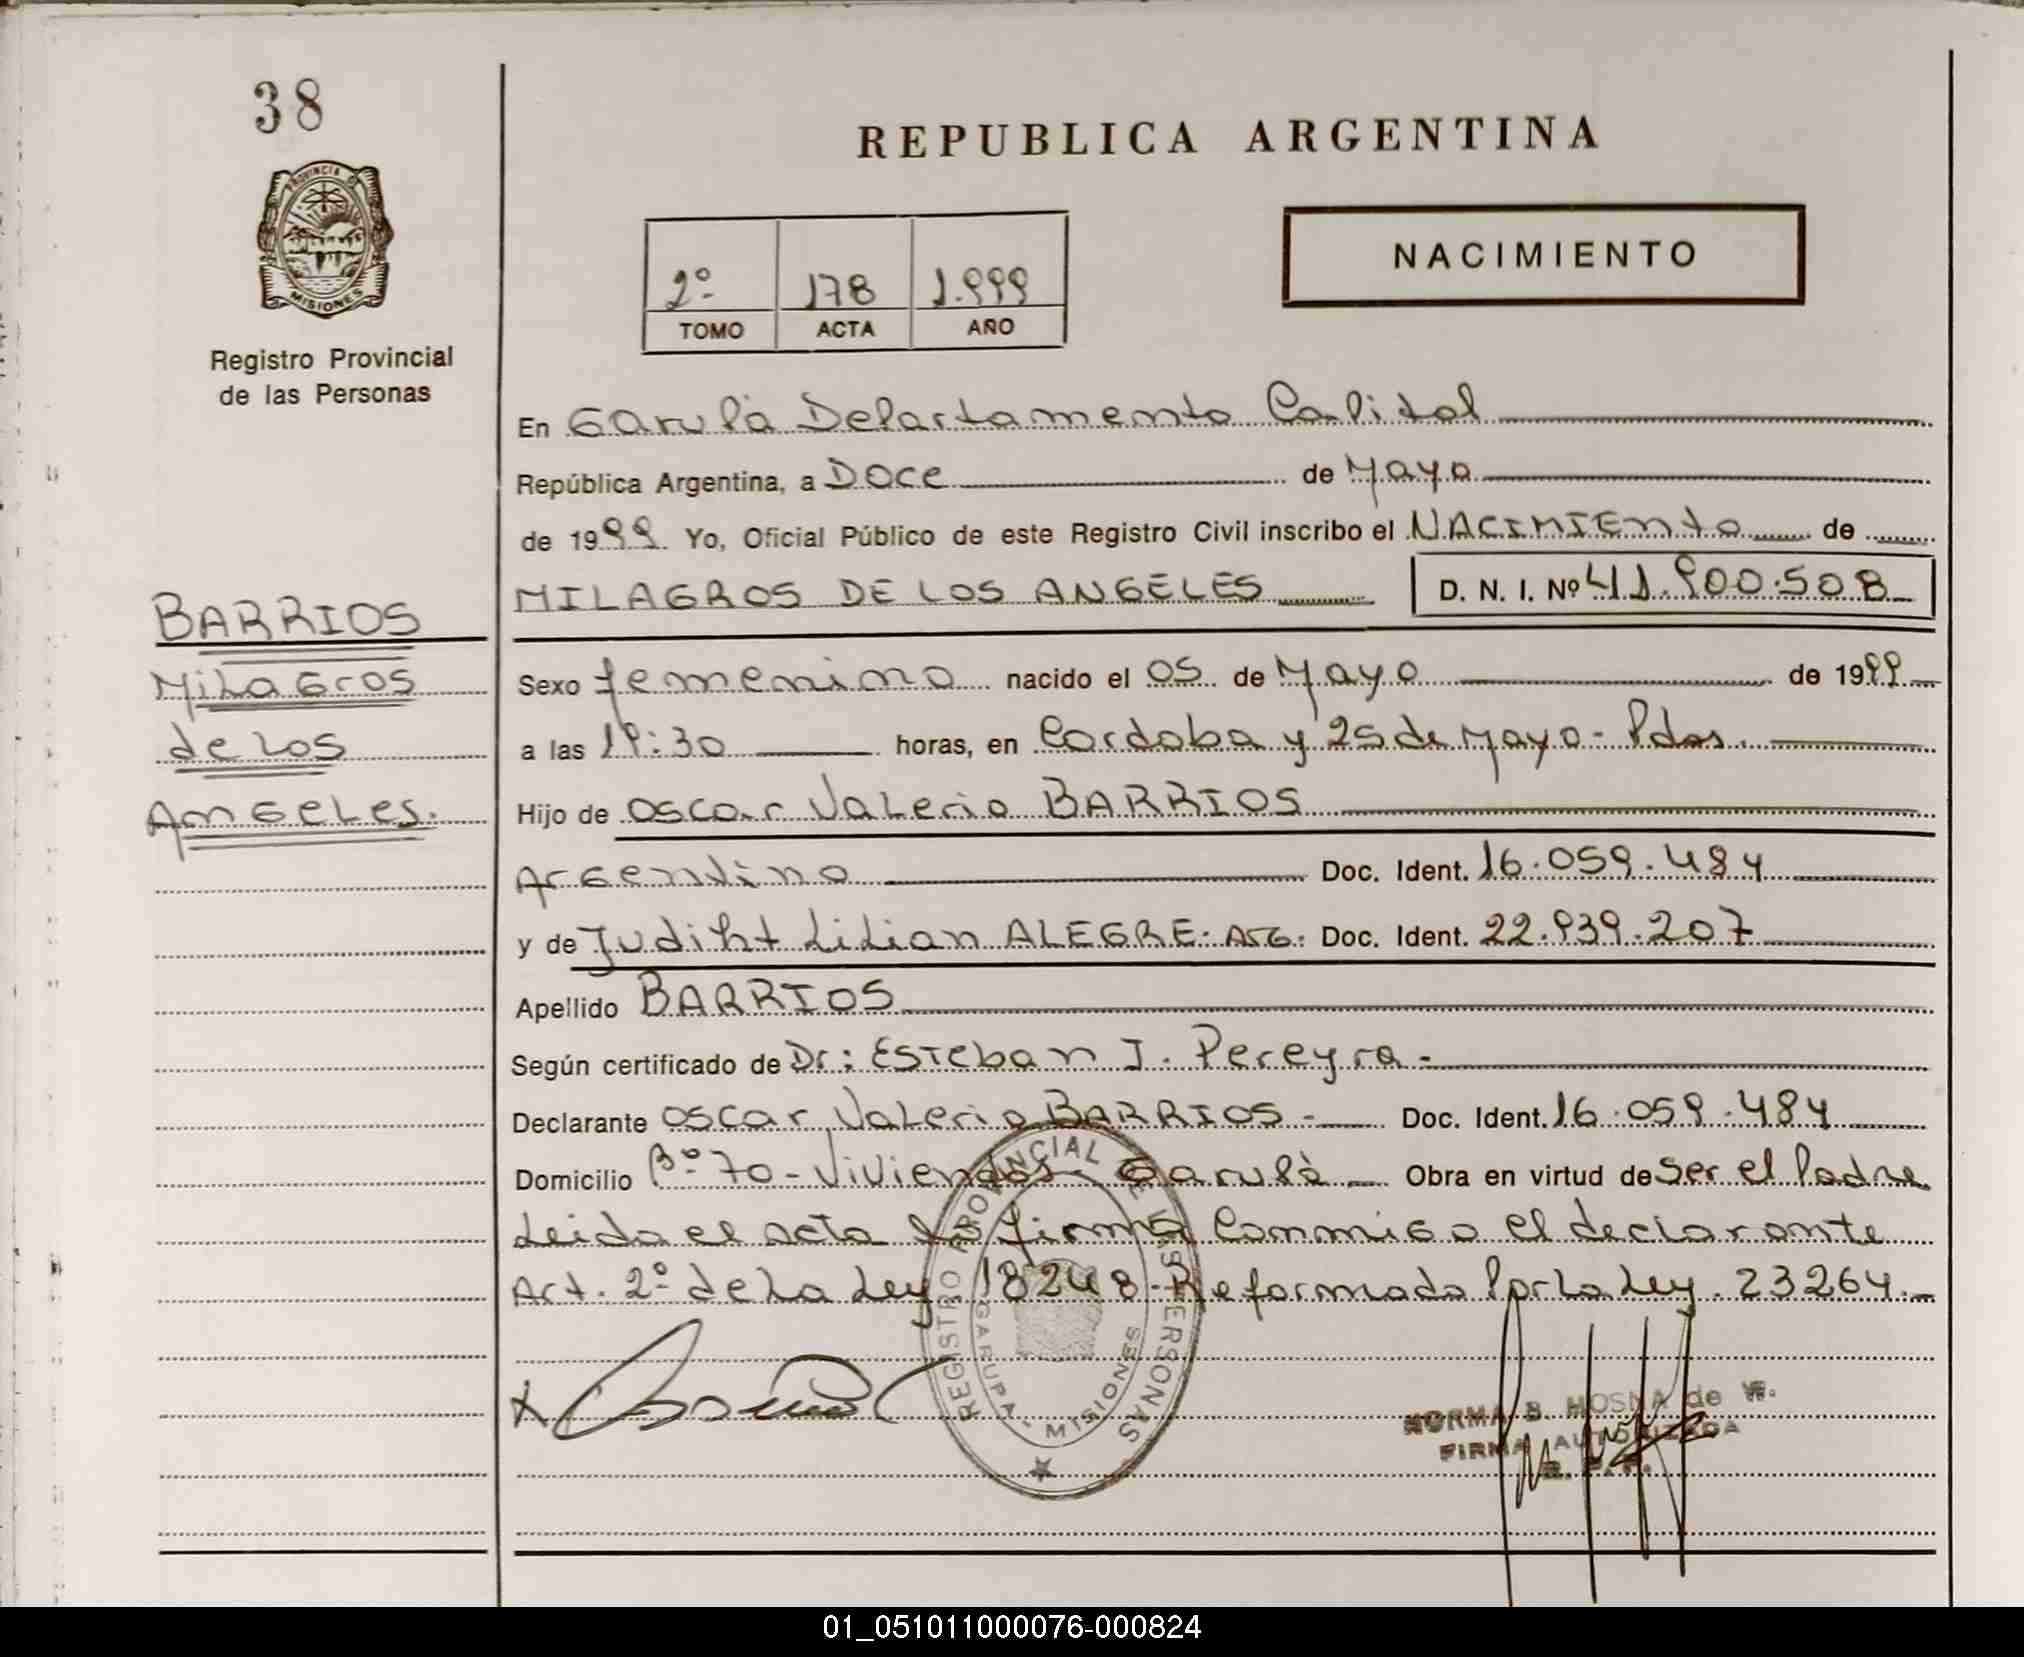 38
PROVINCIA DE
MISIONES
Registro Provincial
de las Personas
REPUBLICA ARGENTINA
2º 178 1.999
TOMO ACTA AÑO
NACIMIENTO
En Garupá Departamento Capital
República Argentina, a Doce de Mayo
de 1999 Yo, Oficial Público de este Registro Civil inscribo el NACIMIENTO de
MILAGROS DE LOS ANGELES D. N. I. Nº 41.900.508
BARRIOS
Milagros
de Los
Angeles.
Sexo femenino nacido el 05 de Mayo de 1999
a las 19:30 horas, en Cordoba y 25 de Mayo - Pdas.
Hijo de Oscar Valerio BARRIOS
Argentino Doc. Ident. 16.059.484
y de Judiht Lilian ALEGRE. Arg. Doc. Ident. 22.939.207
Apellido BARRIOS
Según certificado de Dr: Esteban J. Pereyra.-
Declarante Oscar Valerio BARRIOS.- Doc. Ident. 16.059.484
Domicilio Bº 70 - Viviendas - Garupá Obra en virtud de Ser el Padre
Leida el acta la firma Conmigo el declarante
Art. 2º de la Ley 18248 - Reformado Por La Ley. 23264.-
REGISTRO PROVINCIAL DE LAS PERSONAS
GARUPA - MISIONES
NORMA B. HOSNA de W.
FIRMA AUTORIZADA
01_051011000076-000824